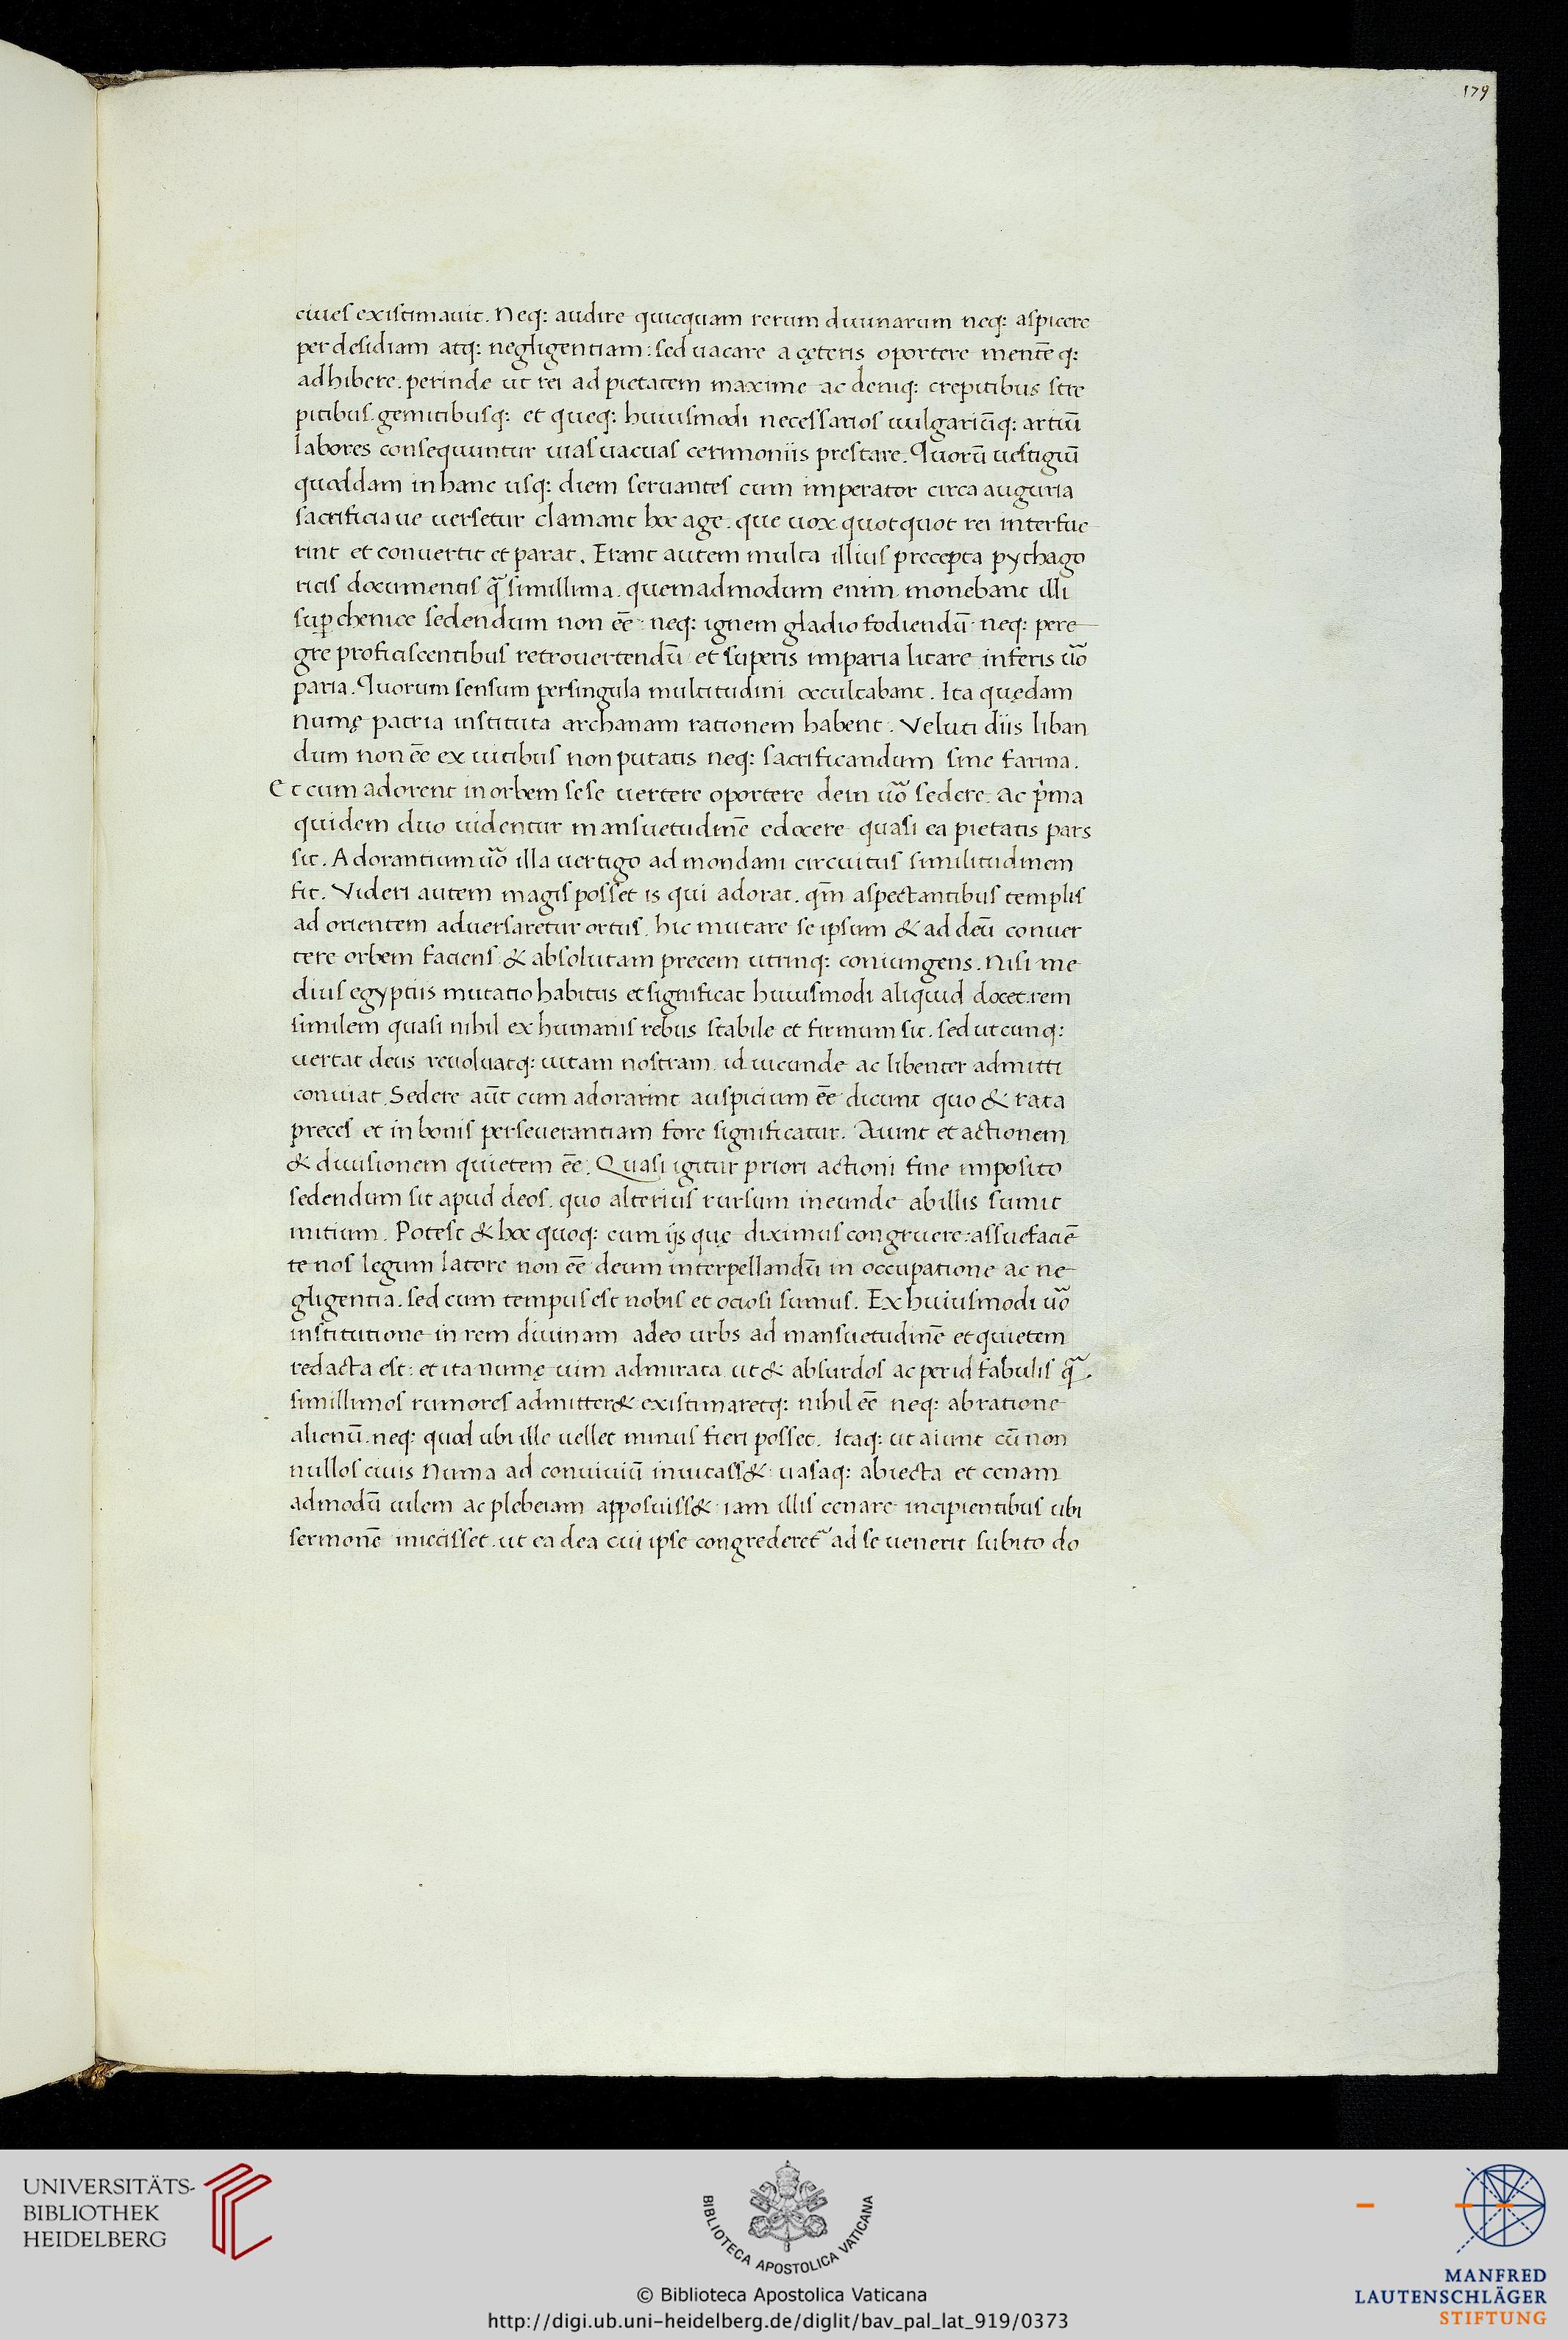 179
ciues existimauit. Neq: audire quicquam rerum diuinarum neq: aspicere
per desidiam atq: negligentiam: sed uacare a cęteris oportere mentē q:
adhibere. perinde ut rei ad pietatem maxime ac deniq: crepitibus stre
pitibus. gemitibusq: et queq: huiusmodi necessarios uulgariūq: artiū
labores consequuntur uias uacuas cerimoniis prestare. Quorū uestigiū
quoddam in hanc usq: diem seruantes cum imperator circa auguria
sacrificia ue uersetur clamant hoc age. que uox quotquot rei interfue
rint et conuertit et parat. Erant autem multa illius precepta pythago
ricis documentis q̃ simillima. quemadmodum enim monebant illi
suꝑ chenice sedendum non eē neq: ignem gladio fodiendū neq: pere
gre proficiscentibus retrouertendū et superis imparia litare inferis uõ
paria. Quorum sensum per singula multitudini occultabant. Ita quędam
numę patria instituta archanam rationem habent. Veluti diis liban
dum non eē ex uitibus non putatis neq: sacrificandum sine farina.
Et cum adorent in orbem sese uertere oportere dein uõ sedere. Ac p̃ma
quidem duo uidentur mansuetudinē edocere quasi ea pietatis pars
sit. Adorantium uõ illa uertigo ad mondani circuitus similitudinem
fit. Videri autem magis posset is qui adorat. qm̄ aspectantibus templis
ad orientem aduersaretur ortus. hic mutare se ipsum & ad deū conuer
tere orbem faciens & absolutam precem utrinq: coniungens. Nisi me
dius egyptiis mutatio habitus et significat huiusmodi aliquid docet. rem
similem quasi nihil ex humanis rebus stabile et firmum sit. sed utcunq:
uertat deus reuoluatq: uitam nostram. id iucunde ac libenter admitti
conuiat. Sedere aūt cum adorarint auspicium eē dicunt quo & rata
preces et in bonis perseuerantiam fore significatur. Aiunt et actionem
& diuisionem quietem eē. Quasi igitur priori actioni fine imposito
sedendum sit apud deos. quo alterius rursum ineunde ab illis sumit
initium. Potest & hoc quoq: cum ijs quę diximus congruere: assuefaciē
te nos legum latore non eē deum interpellandū in occupatione ac ne
gligentia. sed cum tempus est nobis et ociosi sumus. Ex huiusmodi uõ
institutione in rem diuinam adeo urbs ad mansuetudinē et quietem
redacta est: et ita numę uim admirata ut & absurdos ac per id fabulis q̃
simillimos rumores admitter& existimaretq: nihil eē neq: ab ratione
alienū. neq: quod ubi ille uellet minus fieri posset. Itaq: ut aiunt cū non
nullos ciuis Numa ad conuiuiū inuitass& uasaq: abiecta et cenam
admodū uilem ac plebeiam apposuiss& iam illis cenare incipientibus ubi
sermonē iniecisset. ut ea dea cui ipse congrederet᷑ ad se uenerit subito do
UNIVERSITÄTS-
BIBLIOTHEK
HEIDELBERG
BIBLIOTECA APOSTOLICA VATICANA
© Biblioteca Apostolica Vaticana
http://digi.ub.uni-heidelberg.de/diglit/bav_pal_lat_919/0373
MANFRED
LAUTENSCHLÄGER
STIFTUNG